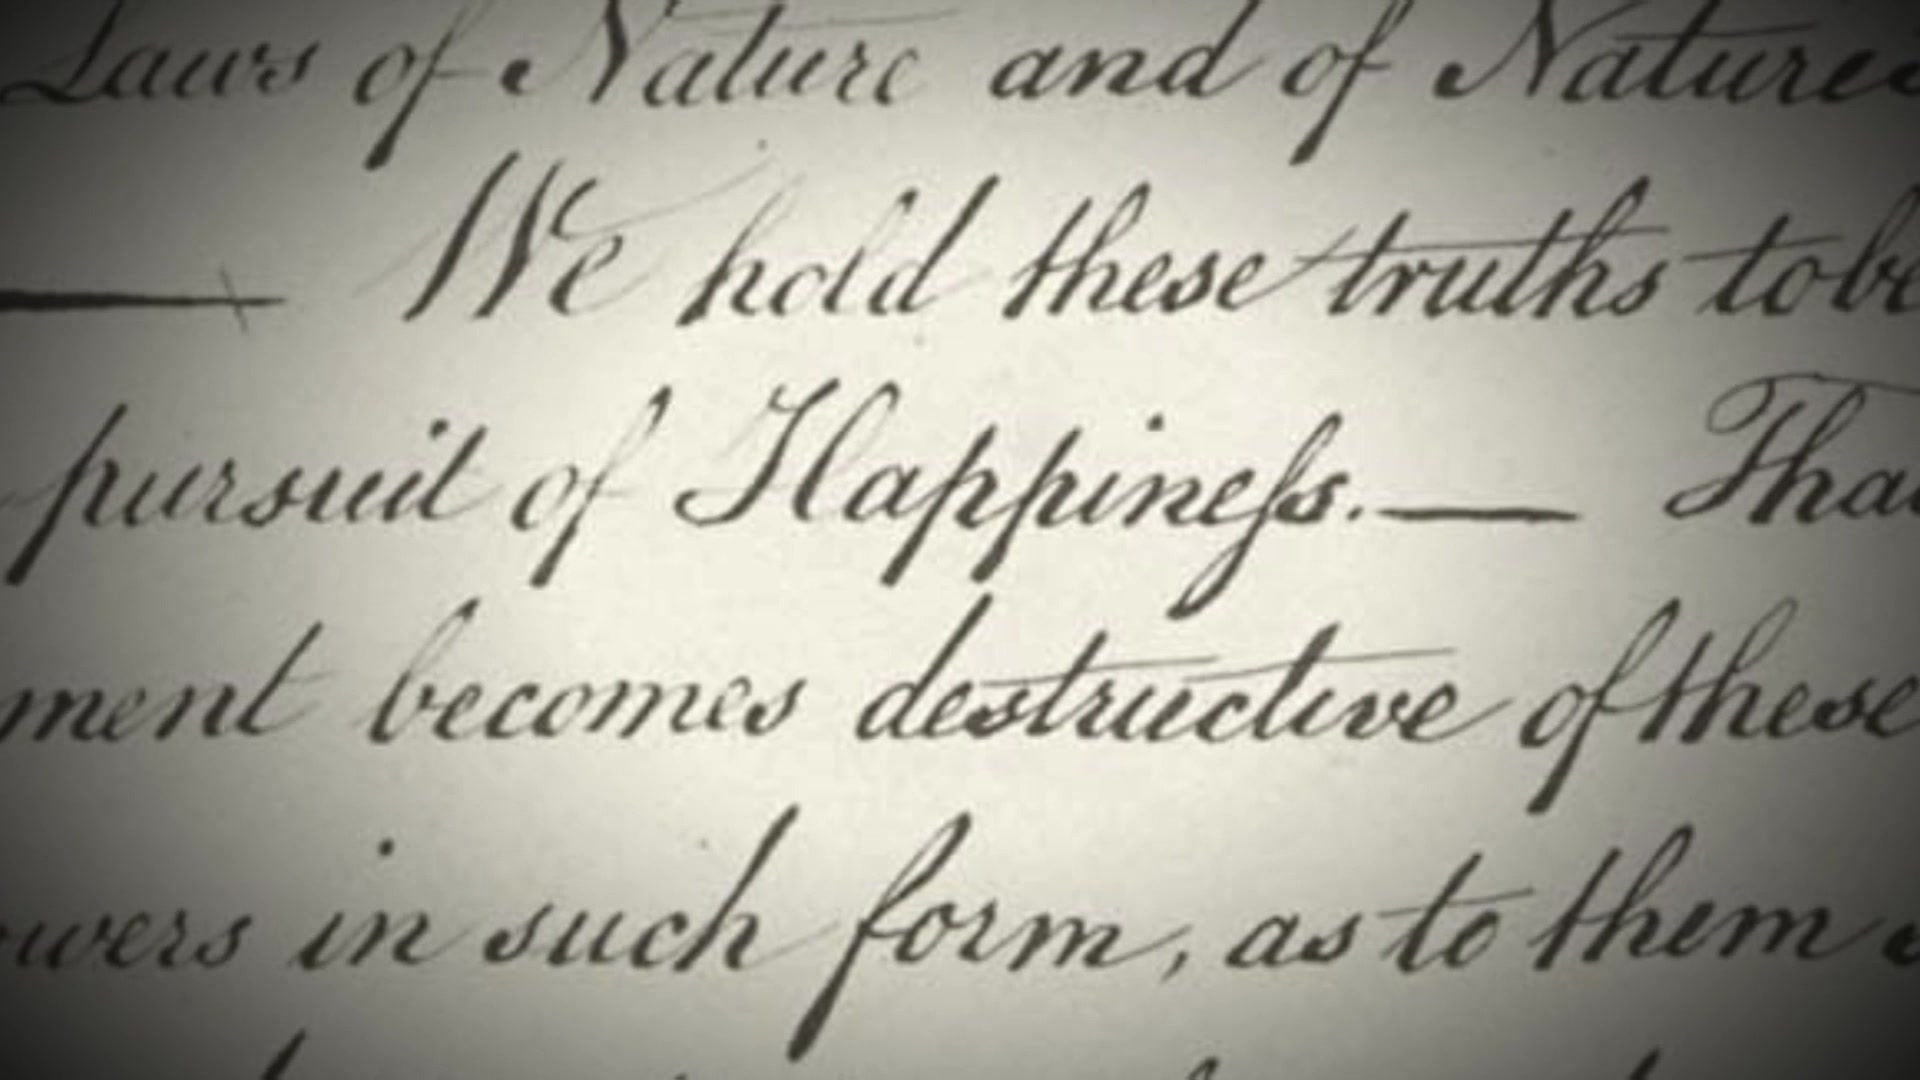 Laws of Nature and of Nature's
— We hold these truths to be
pursuit of Happineſs. — That
ment becomes destructive of these
wers in such form, as to them